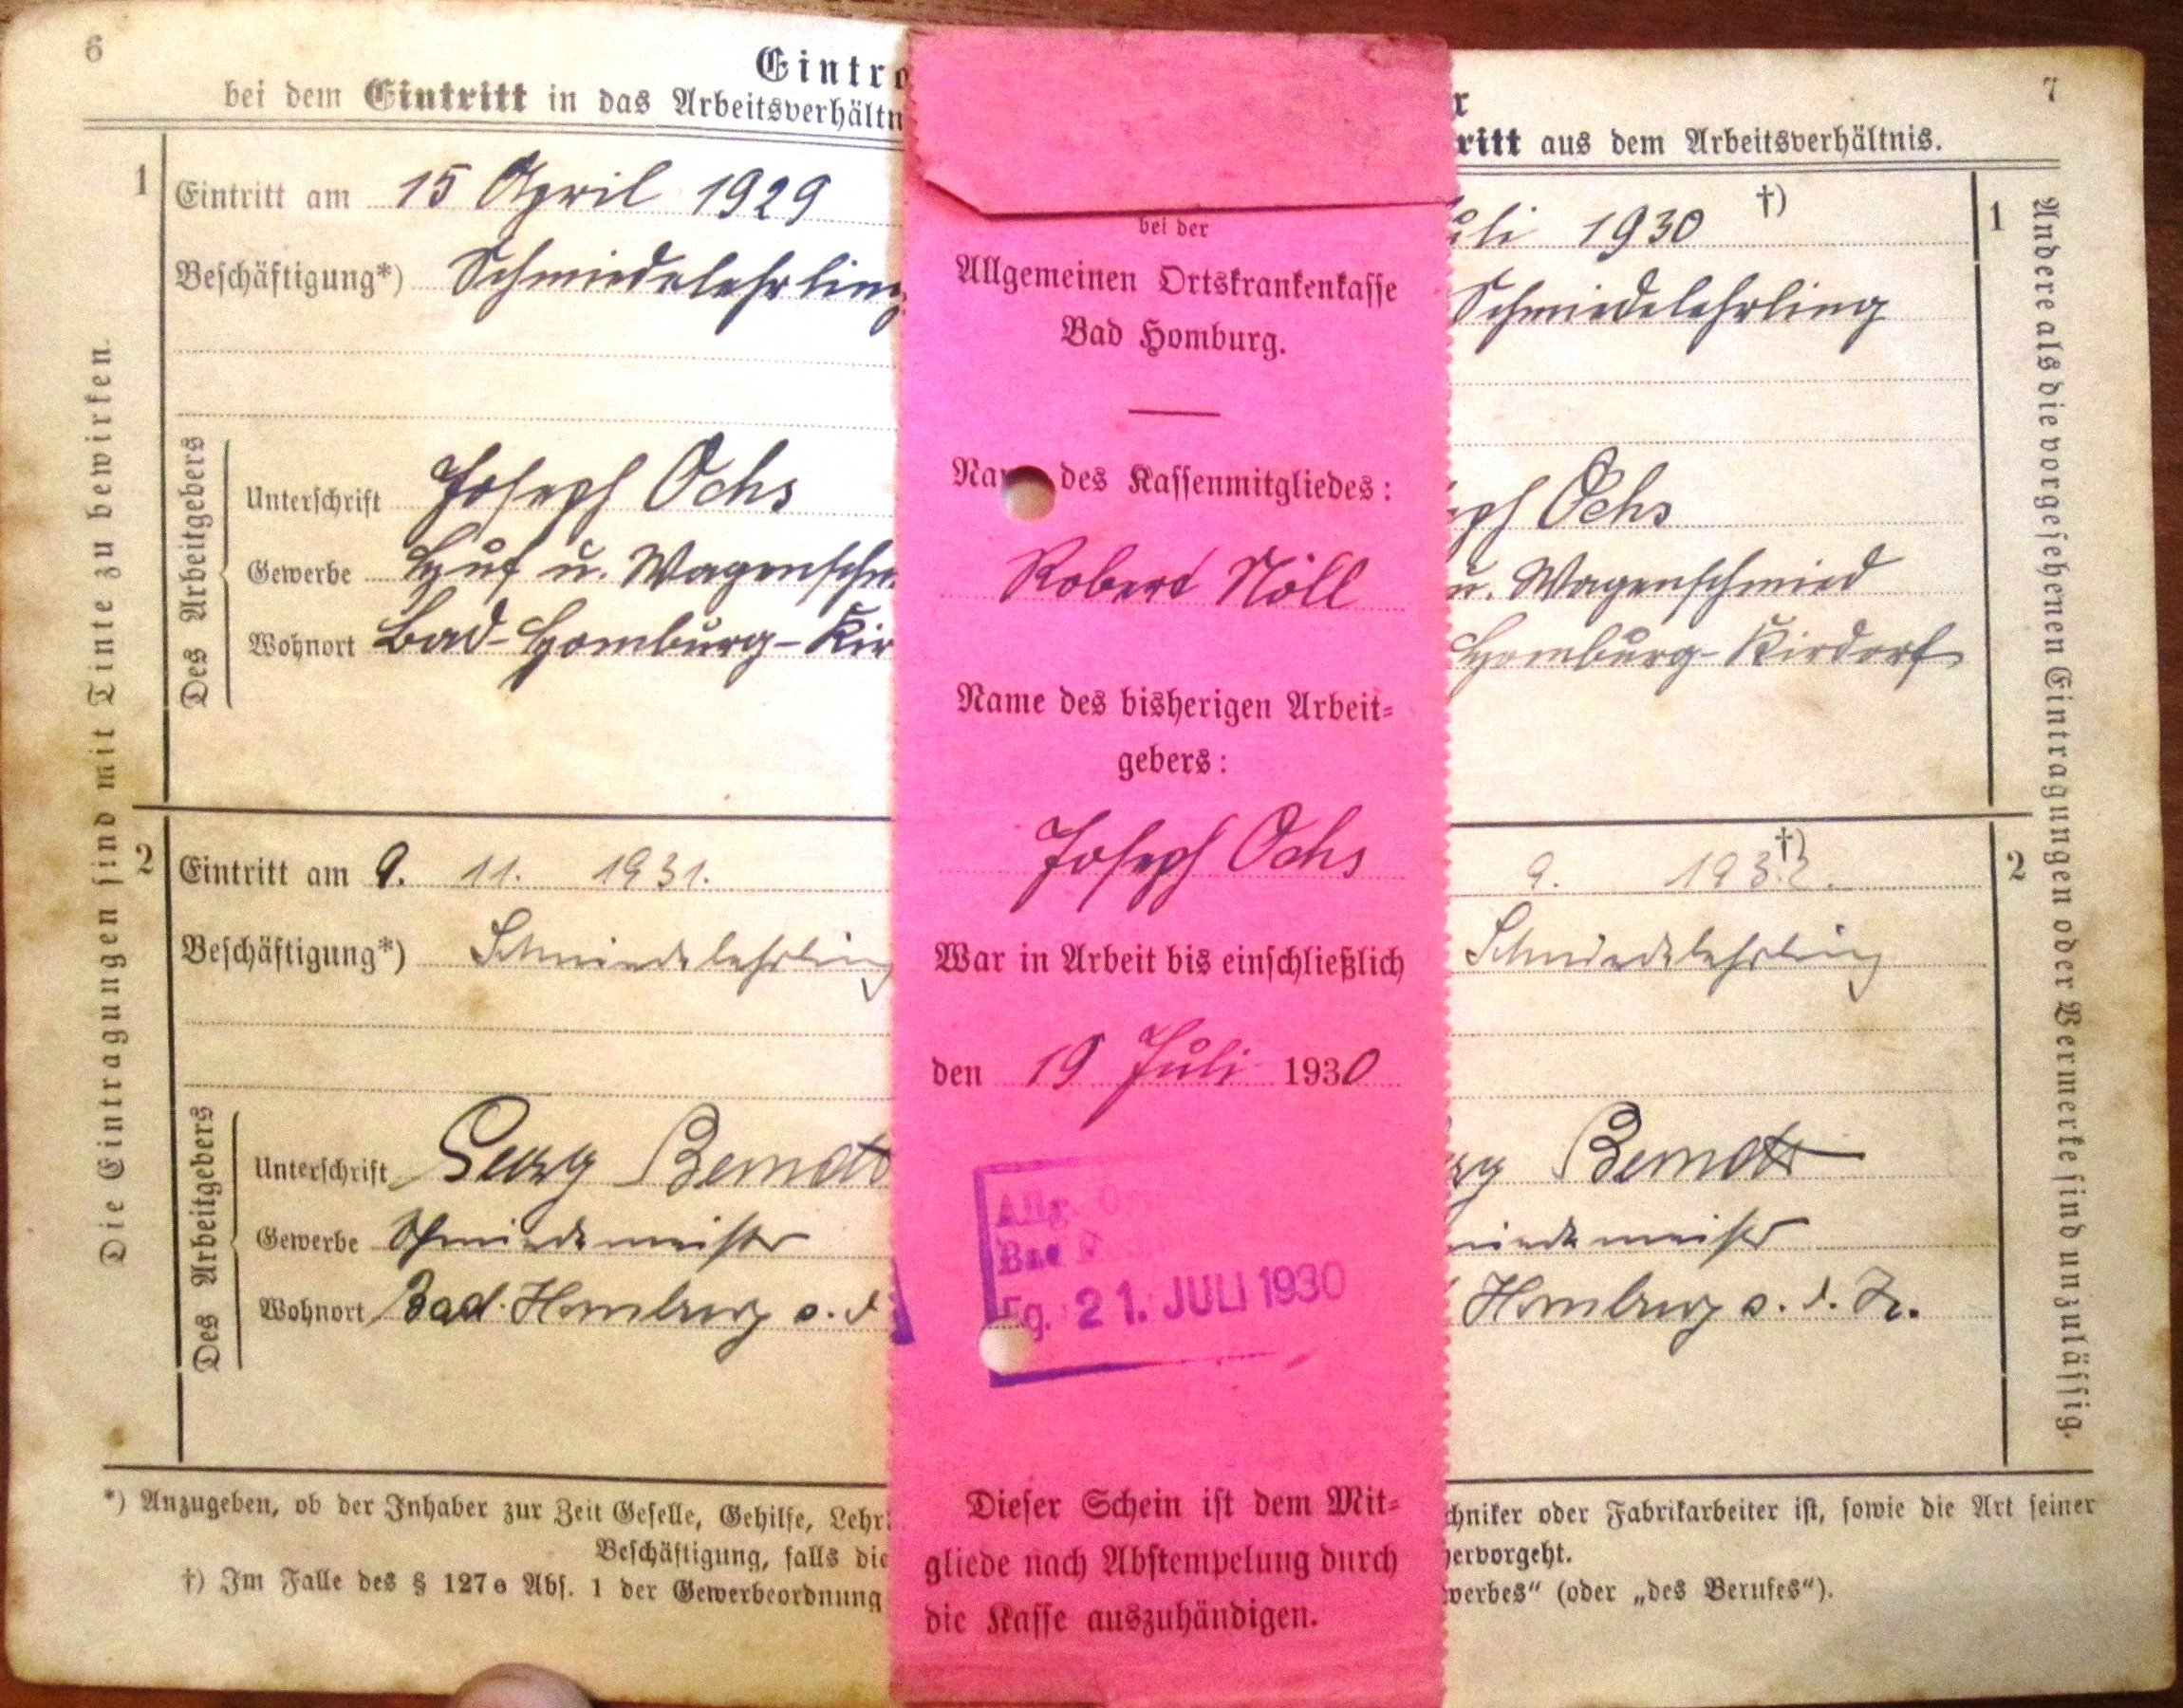 6
Eintra
bei dem Eintritt in das Arbeitsverhältn
Die Eintragungen sind mit Tinte zu bewirken.
1
Eintritt am 15 April 1929
Beschäftigung*) Schmiedelehrling
Des Arbeitgebers
Unterschrift Joseph Ochs
Gewerbe Huf u. Wagenschm
Wohnort Bad-Homburg-Kir
2
Eintritt am 9. 11. 1931.
Beschäftigung*) Schmiedelehrling
Des Arbeitgebers
Unterschrift Georg Berndt
Gewerbe Schmiedemeister
Wohnort Bad. Homburg v. d
*) Anzugeben, ob der Inhaber zur Zeit Geselle, Gehilfe, Lehr
Beschäftigung, falls die
†) Im Falle des § 127e Abs. 1 der Gewerbeordnung
bei der
Allgemeinen Ortskrankenkasse
Bad Homburg.
Na des Kassenmitgliedes:
Robert Nöll
Name des bisherigen Arbeit=
gebers:
Joseph Ochs
War in Arbeit bis einschließlich
den 19 Juli 1930
Allg. O
Bad
Eg. 21. JULI 1930
Dieser Schein ist dem Mit=
gliede nach Abstempelung durch
die Kasse auszuhändigen.
7
r
ritt aus dem Arbeitsverhältnis.
uli 1930 †)
1
Schmiedelehrling
eph Ochs
u. Wagenschmied
Homburg-Kirdorf
†)
9. 1932.
2
Schmiedelehrling
rg Berndt
miedemeister
Homburg v. d. H.
Andere als die vorgesehenen Eintragungen oder Vermerke sind unzulässig.
chniker oder Fabrikarbeiter ist, sowie die Art seiner
hervorgeht.
werbes“ (oder „des Berufes“).